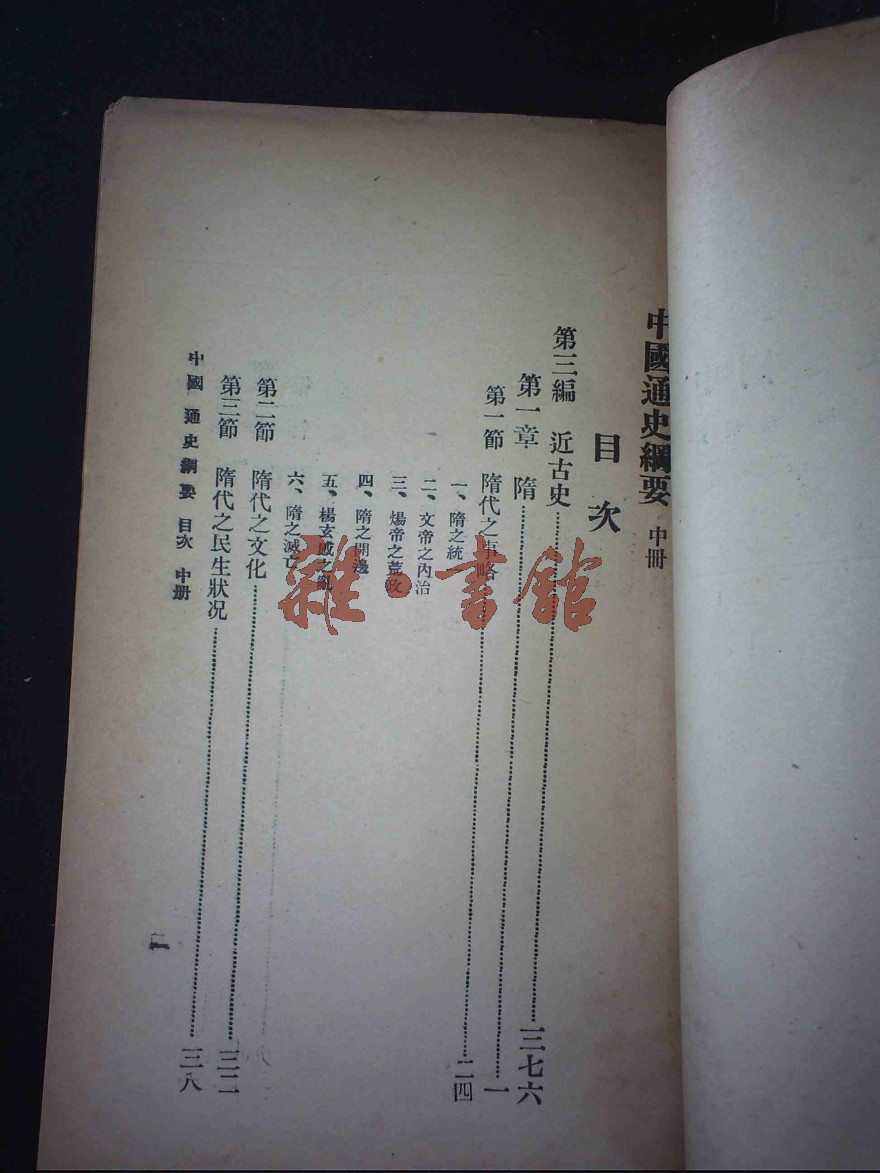 中國通史綱要 中冊
目次
第三編 近古史 一三七六
第一章 隋 一
第一節 隋代之事略 二四
一、隋之統一
二、文帝之內治
三、煬帝之荒政
四、隋之開邊
五、楊玄感之亂
六、隋之滅亡
第二節 隋代之文化 三二
第三節 隋代之民生狀况 三八
中國通史綱要 目次 中册
雜·書館